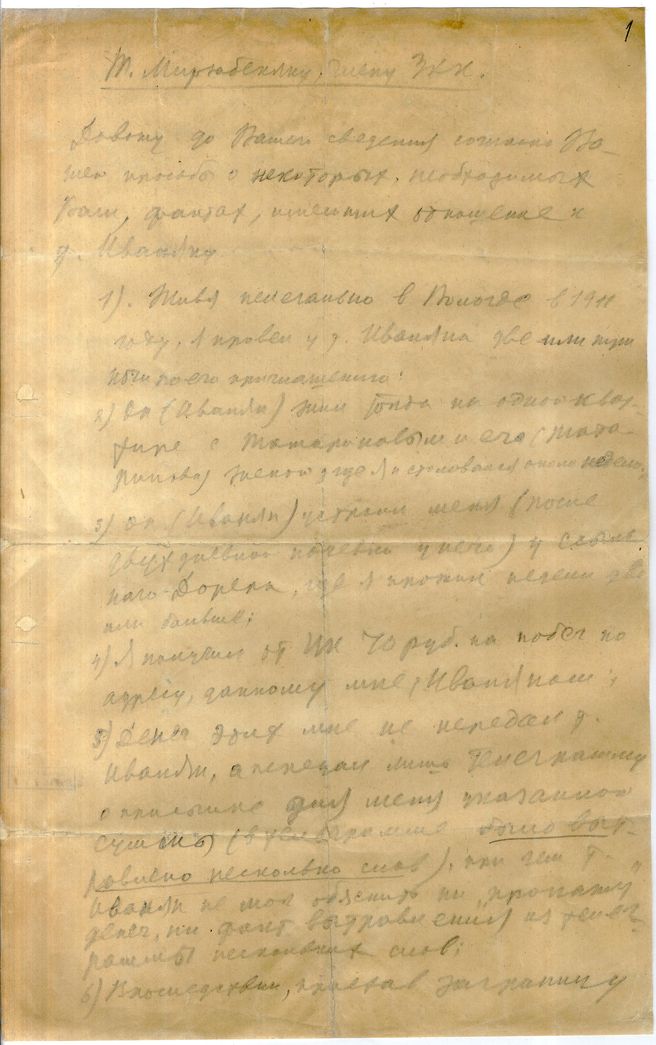 1
Т. Мирзабекянцу, члену ЗКК.
Довожу до Вашего сведения согласно Ва-
шей просьбы о некоторых, необходимых
Вам, фактах, имеющих отношение к
т. Иваняну
1). Живя нелегально в Вологде в 1911
году, я провел у т. Иваняна две или три
ночи по его приглашению;
2) Он (Иванян) жил тогда на одной квар-
тире с Татариновым и его (Тата-
ринова) женой, где я и столовался около недели;
3) Он (Иванян) устроил меня (после
двухдневной ночевки у него) у ссыль-
ного Доррера, где я прожил недели две
или больше;
4) Я получил от ЦК 70 руб. на побег по
адресу, данному мне Иваняном;
5) Денег этих мне не передал т.
Иванян, а передал лишь телеграмму
о присылке для меня указанной
суммы (в телеграмме было выт-
равлено несколько слов), при чем т.
Иванян не мог объяснить ни "пропажу"
денег, ни факт вытравления из телег-
раммы нескольких слов;
6) Впоследствии, приехав заграницу